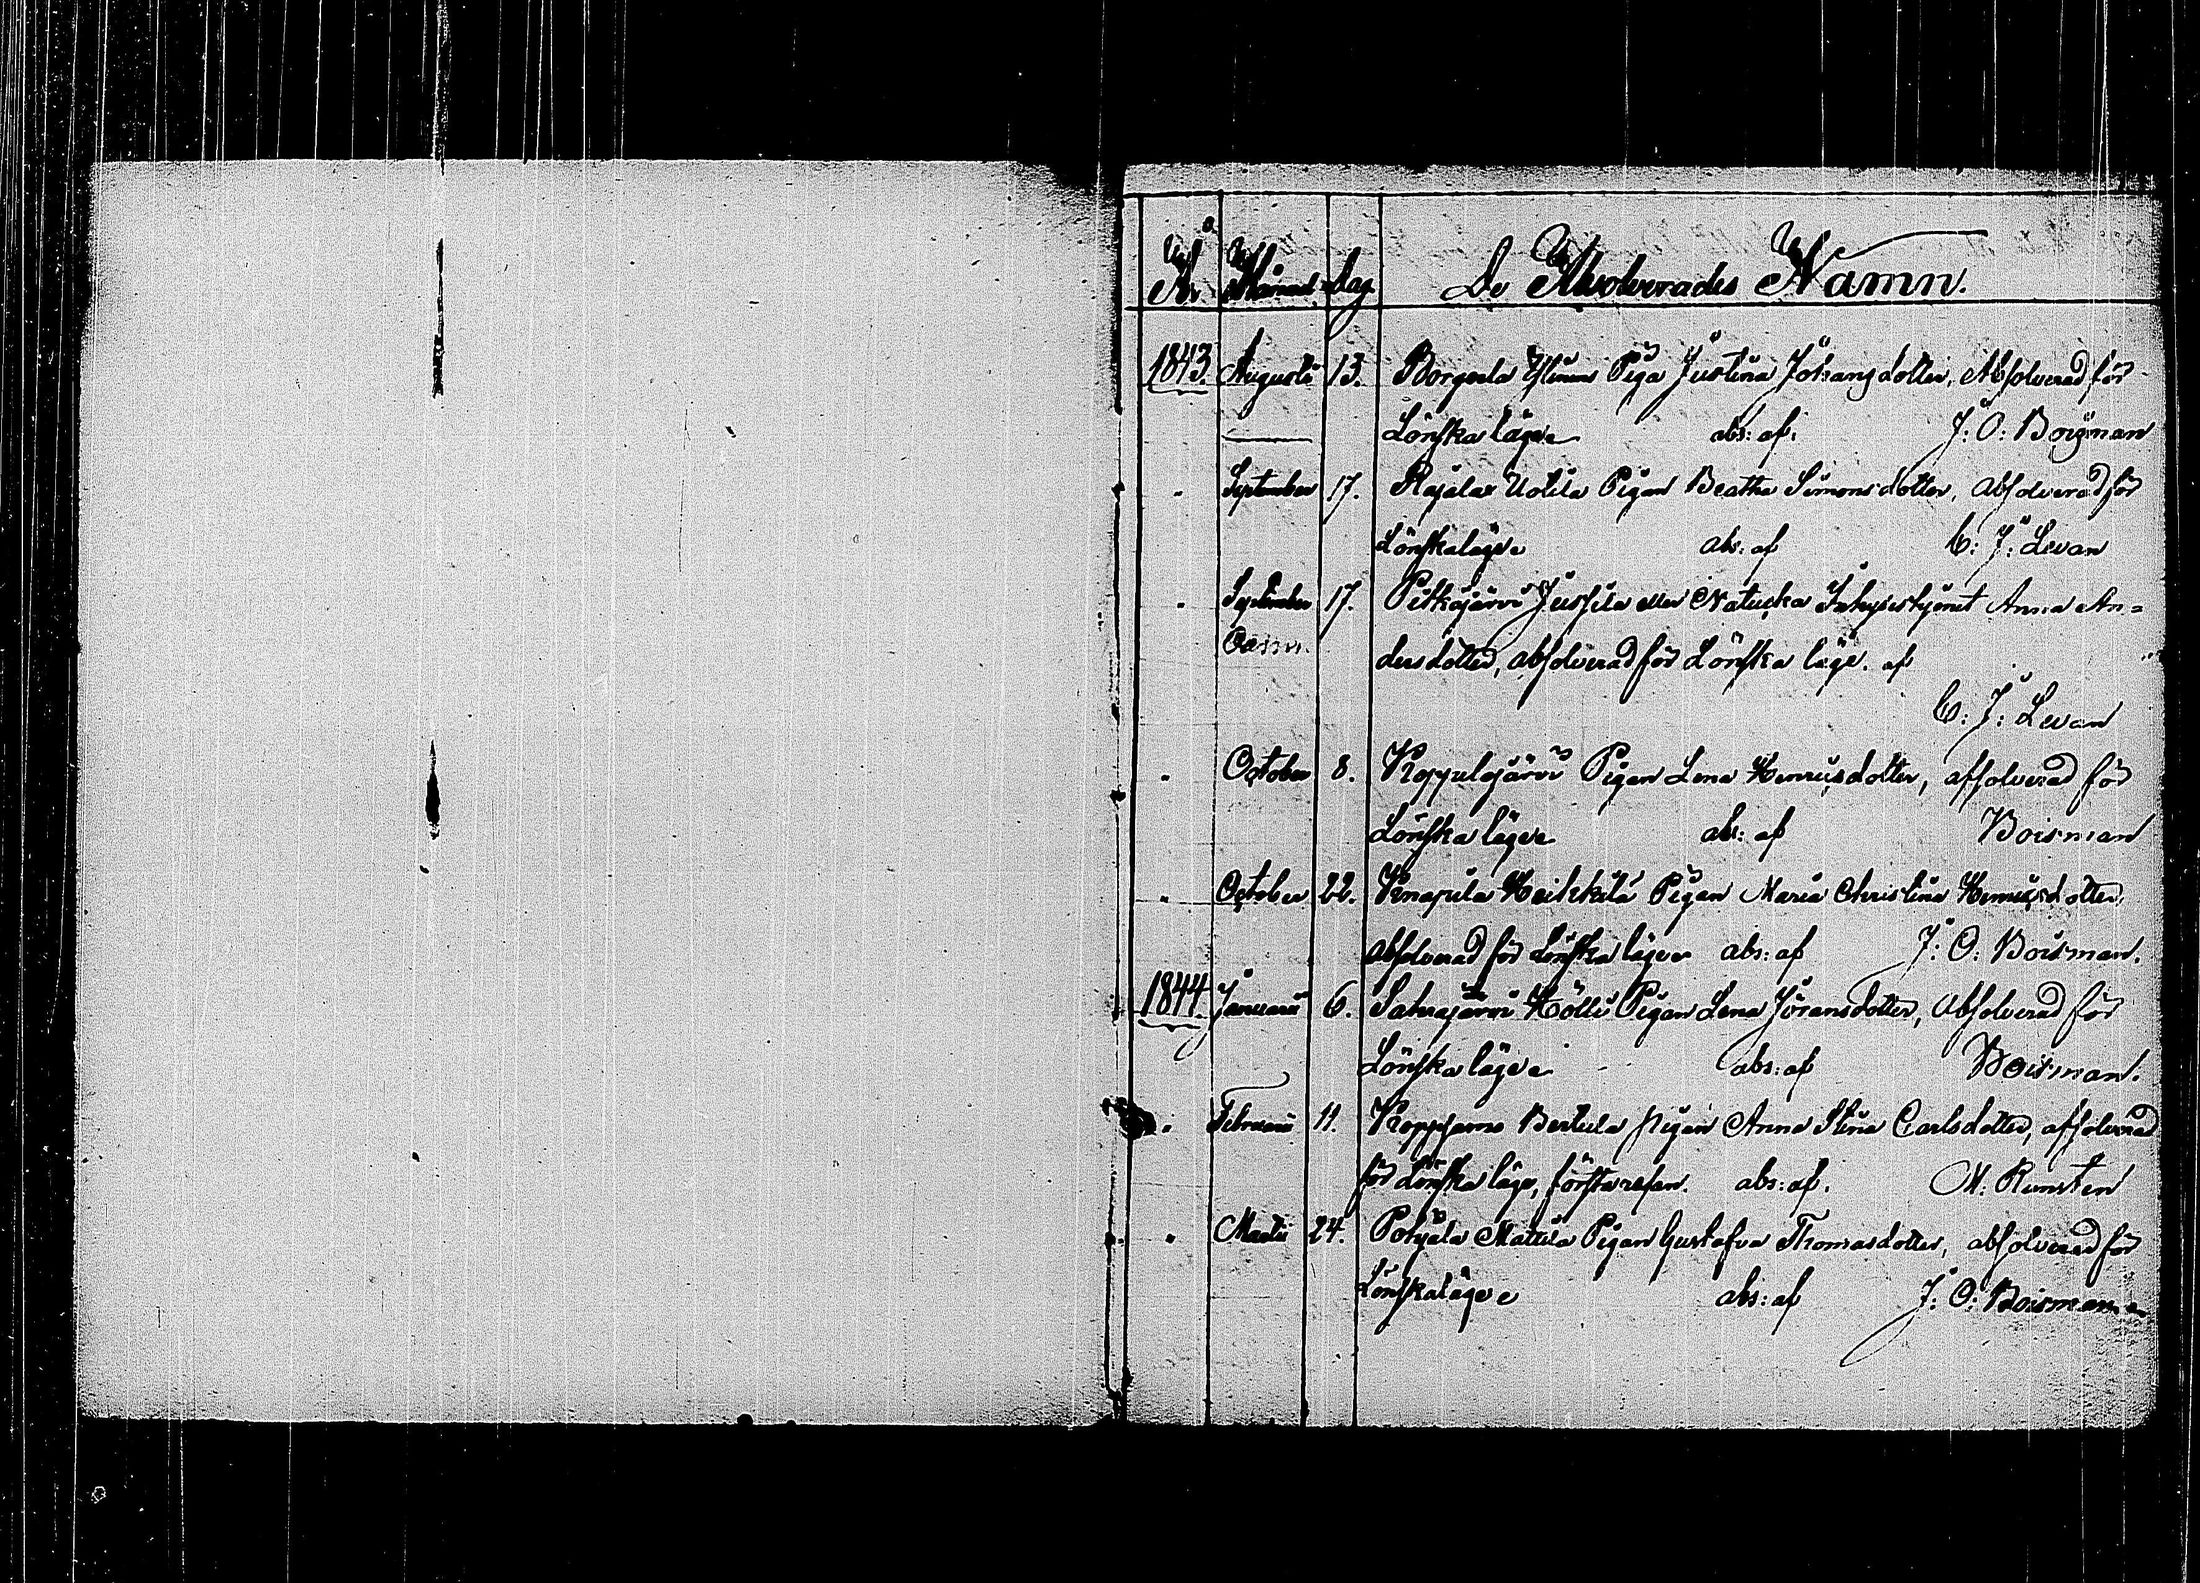 År Månad Dag De Absolverades Namn.
1843. Augusti 13. Borgerla Piga Justina Johansdotter, Absolverad för
Lönska läge abs: af. J: O: Boisman
" September 17. Rajala Uotila Pigan Beatha Simonsdotter, absolverad för
Lönskaläge abs: af C: J: Levan
" September 17. Pitkäjärvi Jussila eller Matucka Anna An=
dersdotter, absolverad för Lönska läge. af
C: J: Levan
" October 8. Koppulajärvi Pigan Lena Henricsdotter, absolverad för
Lönska läge abs: af Boisman
" October 22. Knapila Heikkilä Pigan Maria Christina Henricsdotter,
absolverad för Lönska läge abs: af J: O: Boisman.
1844. Januarii 6. Satrajärvi Hölli Pigan Lena Jöransdotter, absolverad för
Lönska läge abs: af Boisman.
" Februarii 11. Bertula pigan Anna Stina Carlsdotter, absolverad
för Lönska läge, första resan. abs: af. M: Runsten
" Martii 24. Pohjala Mattila Pigan Gustafva Thomasdotter, absolverad för
Lönskaläge abs: af J: O: Boisman